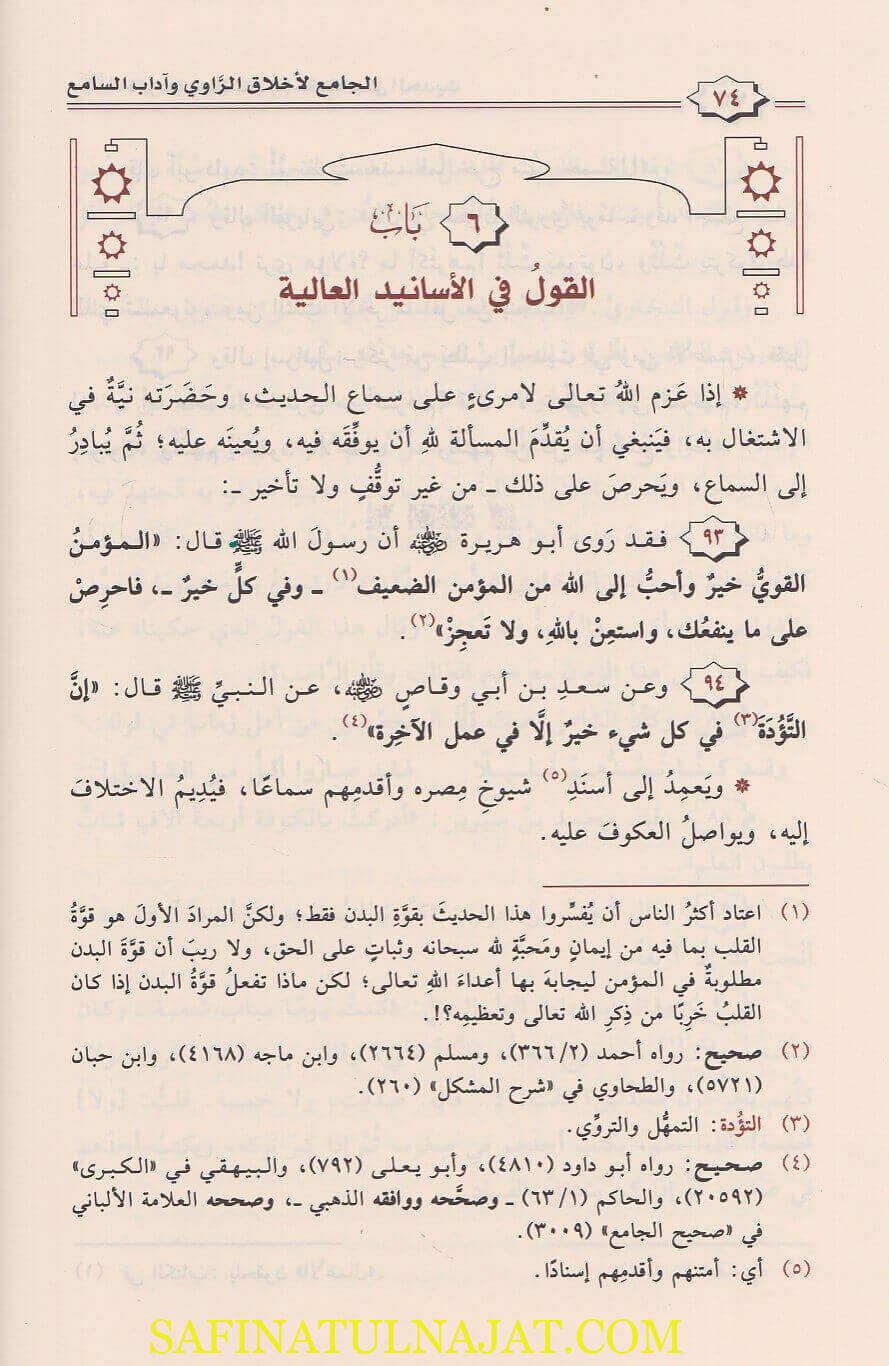 الجامع لأخلاق الرَّاوي وآداب السامع
٧٤
٦ بَابٌ
القولُ في الأسانيد العالية
* إذا عَزم اللهُ تعالى لامرىءٍ على سماع الحديث، وحَضَرَته نيَّةٌ في
الاشتغال به، فيَنبغي أن يُقدِّمَ المسألة للهِ أن يوفِّقَه فيه، ويُعينَه عليه؛ ثُمَّ يُبادِرُ
إلى السماع، ويَحرصَ على ذلك ـ من غير توقُّفٍ ولا تأخير ـ:
٩٣ فقد رَوى أبو هريرة رضي الله عنه أن رسولَ الله ﷺ قال: «المؤمنُ
القويُّ خيرٌ وأحبُّ إلى الله من المؤمن الضعيف(١) ـ وفي كلٍّ خيرٌ ـ، فاحرِصْ
على ما ينفعُك، واستعِنْ باللهِ، ولا تَعجِزْ»(٢).
٩٤ وعن سعدِ بن أبي وقاصٍ رضي الله عنه، عن النبيِّ ﷺ قال: «إنَّ
التَّؤُدَةَ(٣) في كل شيء خيرٌ إلَّا في عمل الآخِرة»(٤).
* ويَعمِدُ إلى أسنَدِ(٥) شيوخِ مِصره وأقدمِهم سماعًا، فيُدِيمُ الاختلافَ
إليه، ويواصلُ العكوفَ عليه.
(١) اعتاد أكثرُ الناس أن يُفسِّروا هذا الحديثَ بقوَّةِ البدن فقط؛ ولكنَّ المرادَ الأولَ هو قوَّةُ
القلب بما فيه من إيمانٍ ومَحبَّةٍ لله سبحانه وثباتٍ على الحق، ولا ريبَ أن قوَّةَ البدن
مطلوبةٌ في المؤمن ليجابهَ بها أعداءَ اللهِ تعالى؛ لكن ماذا تفعلُ قوَّةُ البدن إذا كان
القلبُ خَرِبًا من ذِكرِ الله تعالى وتعظيمِه؟!.
(٢) صحيح: رواه أحمد (٣٦٦/٢)، ومسلم (٢٦٦٤)، وابن ماجه (٤١٦٨)، وابن حبان
(٥٧٢١)، والطحاوي في «شرح المشكل» (٢٦٠).
(٣) التؤُدة: التمهُّل والتروِّي.
(٤) صحيح: رواه أبو داود (٤٨١٠)، وأبو يعلى (٧٩٢)، والبيهقي في «الكبرى»
(٢٠٥٩٢)، والحاكم (٦٣/١) ـ وصحَّحه ووافقه الذهبي ـ، وصححه العلامة الألباني
في «صحيح الجامع» (٣٠٠٩).
(٥) أي: أمتنهم وأقدمِهم إسنادًا.
SAFINATULNAJAT.COM